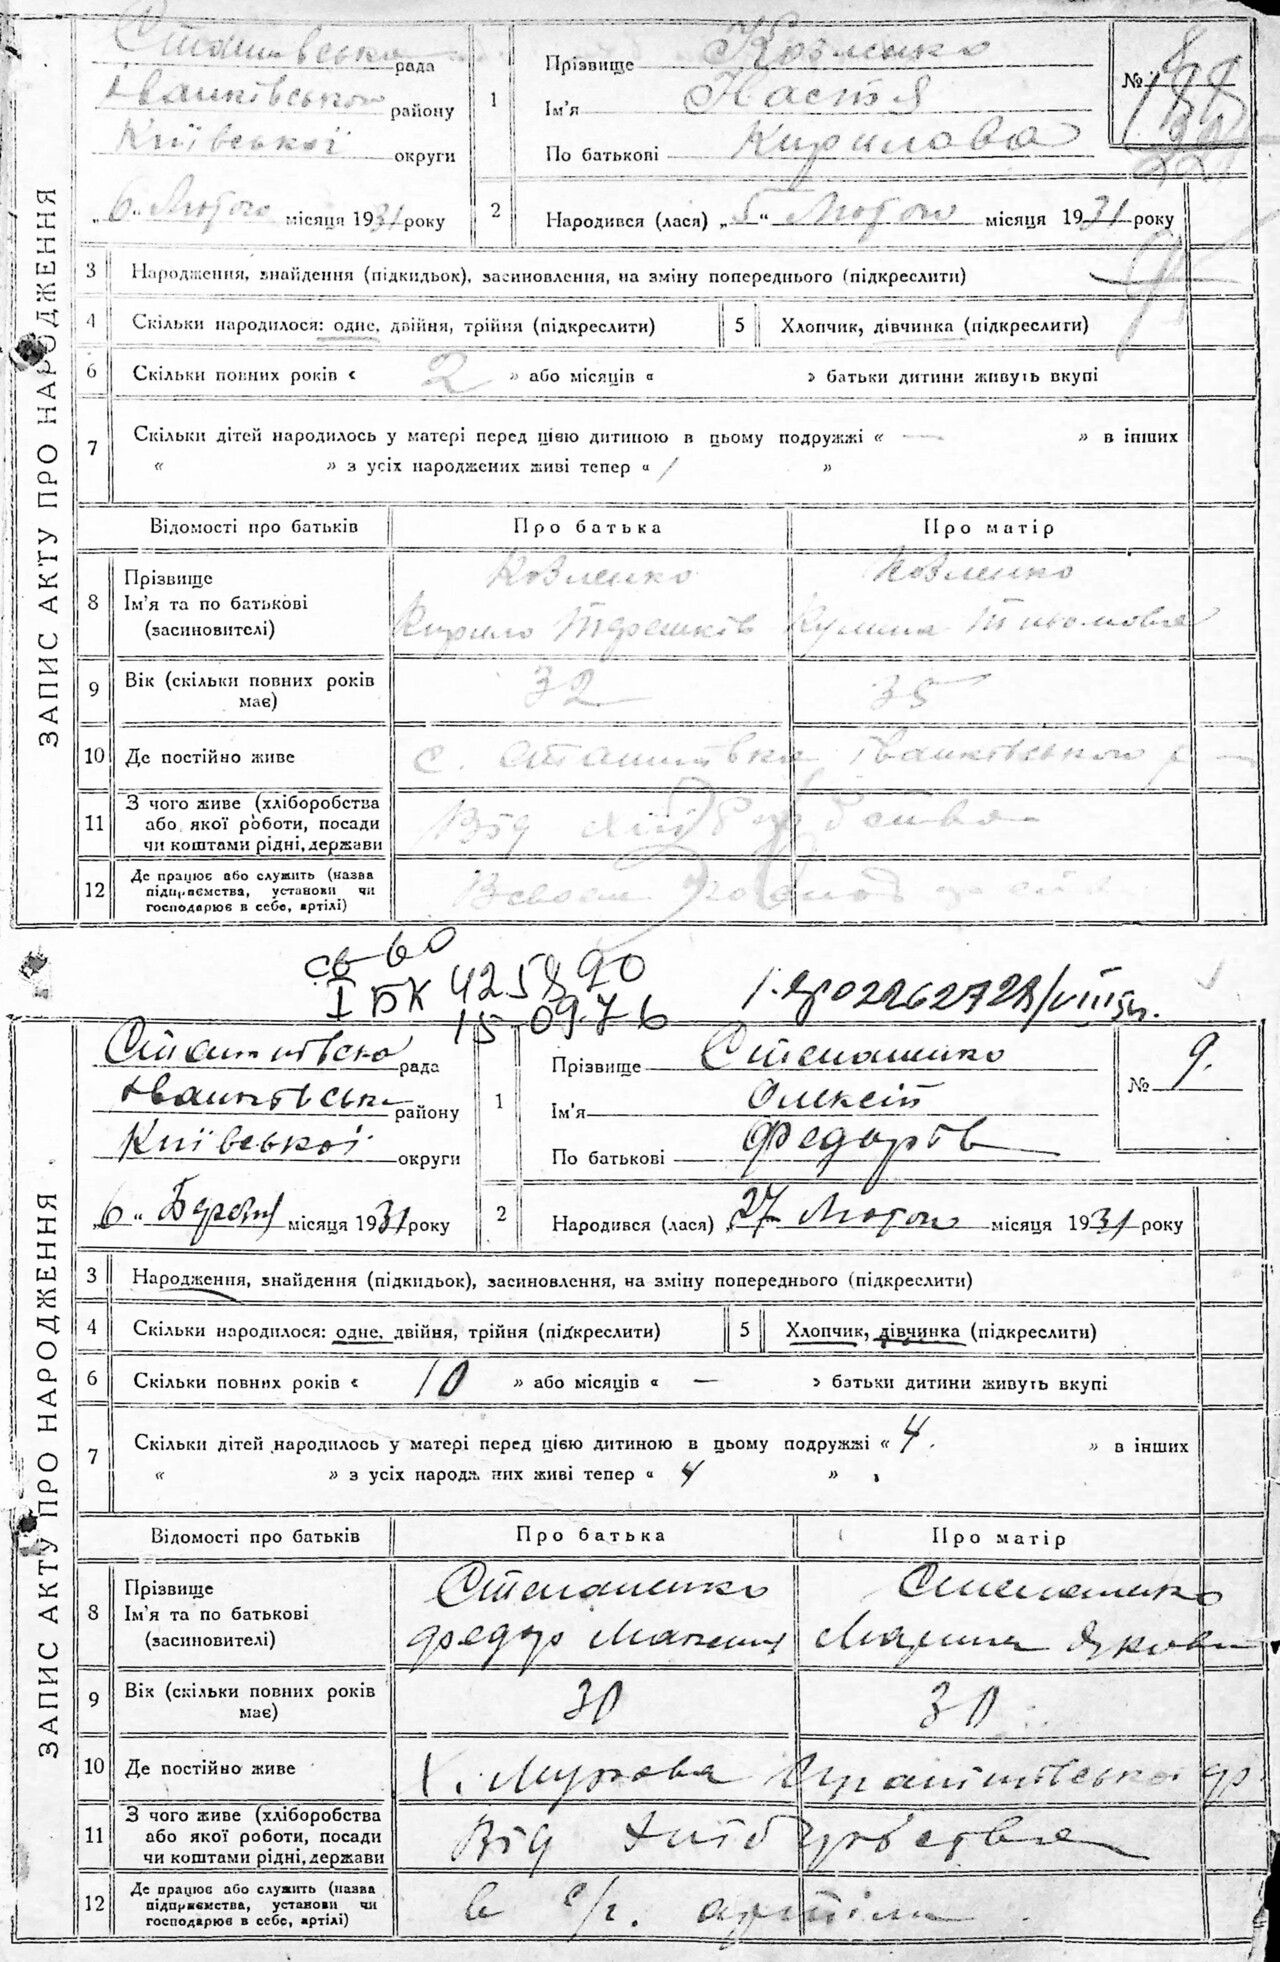 ЗАПИС АКТУ ПРО НАРОДЖЕННЯ
рада
Іванківського району
Київської округи
„6“ Лютого місяця 1931 року
1 Прізвище Козленко
Ім'я Настя
По батькові Кирилова
№ 8
2 Народився (лася) „5“ Лютого місяця 1931 року
3 Народження, знайдення (підкидьок), засиновлення, на зміну попереднього (підкреслити)
4 Скільки народилося: одне, двійня, трійня (підкреслити) 5 Хлопчик, дівчинка (підкреслити)
6 Скільки повних років « 2 » або місяців « » батьки дитини живуть вкупі
7 Скільки дітей народилось у матері перед цією дитиною в цьому подружжі « — » в інших
« » з усіх народжених живі тепер « / »
Відомості про батьків Про батька Про матір
8 Прізвище Козленко Козленко
Ім'я та по батькові
(засиновителі) Кирило Терешків
9 Вік (скільки повних років має) 32 35
10 Де постійно живе с. Іванківського р
11 З чого живе (хліборобства
або якої роботи, посади Від хліборобства
чи коштами рідні, держави
12 Де працює або служить (назва
підприємства, установи чи
господарює в себе, артілі)
І БК 425890
15-09.76
ЗАПИС АКТУ ПРО НАРОДЖЕННЯ
рада
району
Київської округи
„6“ Березня місяця 1931 року
1 Прізвище Степаненко
Ім'я Олексій
По батькові Федорів
№ 9.
2 Народився (лася) „27 Лютого місяця 1931 року
3 Народження, знайдення (підкидьок), засиновлення, на зміну попереднього (підкреслити)
4 Скільки народилося: одне, двійня, трійня (підкреслити) 5 Хлопчик, дівчинка (підкреслити)
6 Скільки повних років « 10 » або місяців « — » батьки дитини живуть вкупі
7 Скільки дітей народилось у матері перед цією дитиною в цьому подружжі « 4. » в інших
« » з усіх народж них живі тепер « 4 »
Відомості про батьків Про батька Про матір
8 Прізвище Степаненко Степаненко
Ім'я та по батькові
(засиновителі) Федор Марина
9 Вік (скільки повних років має) 30 30
10 Де постійно живе Х.
11 З чого живе (хліборобства
або якої роботи, посади Від хліборобства
чи коштами рідні, держави
12 Де працює або служить (назва
підприємства, установи чи в с/г. артілі
господарює в себе, артілі)